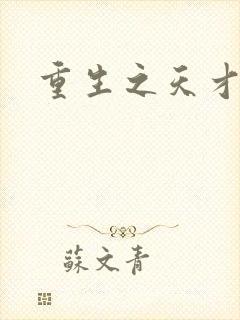 重生之天才
蘇文青